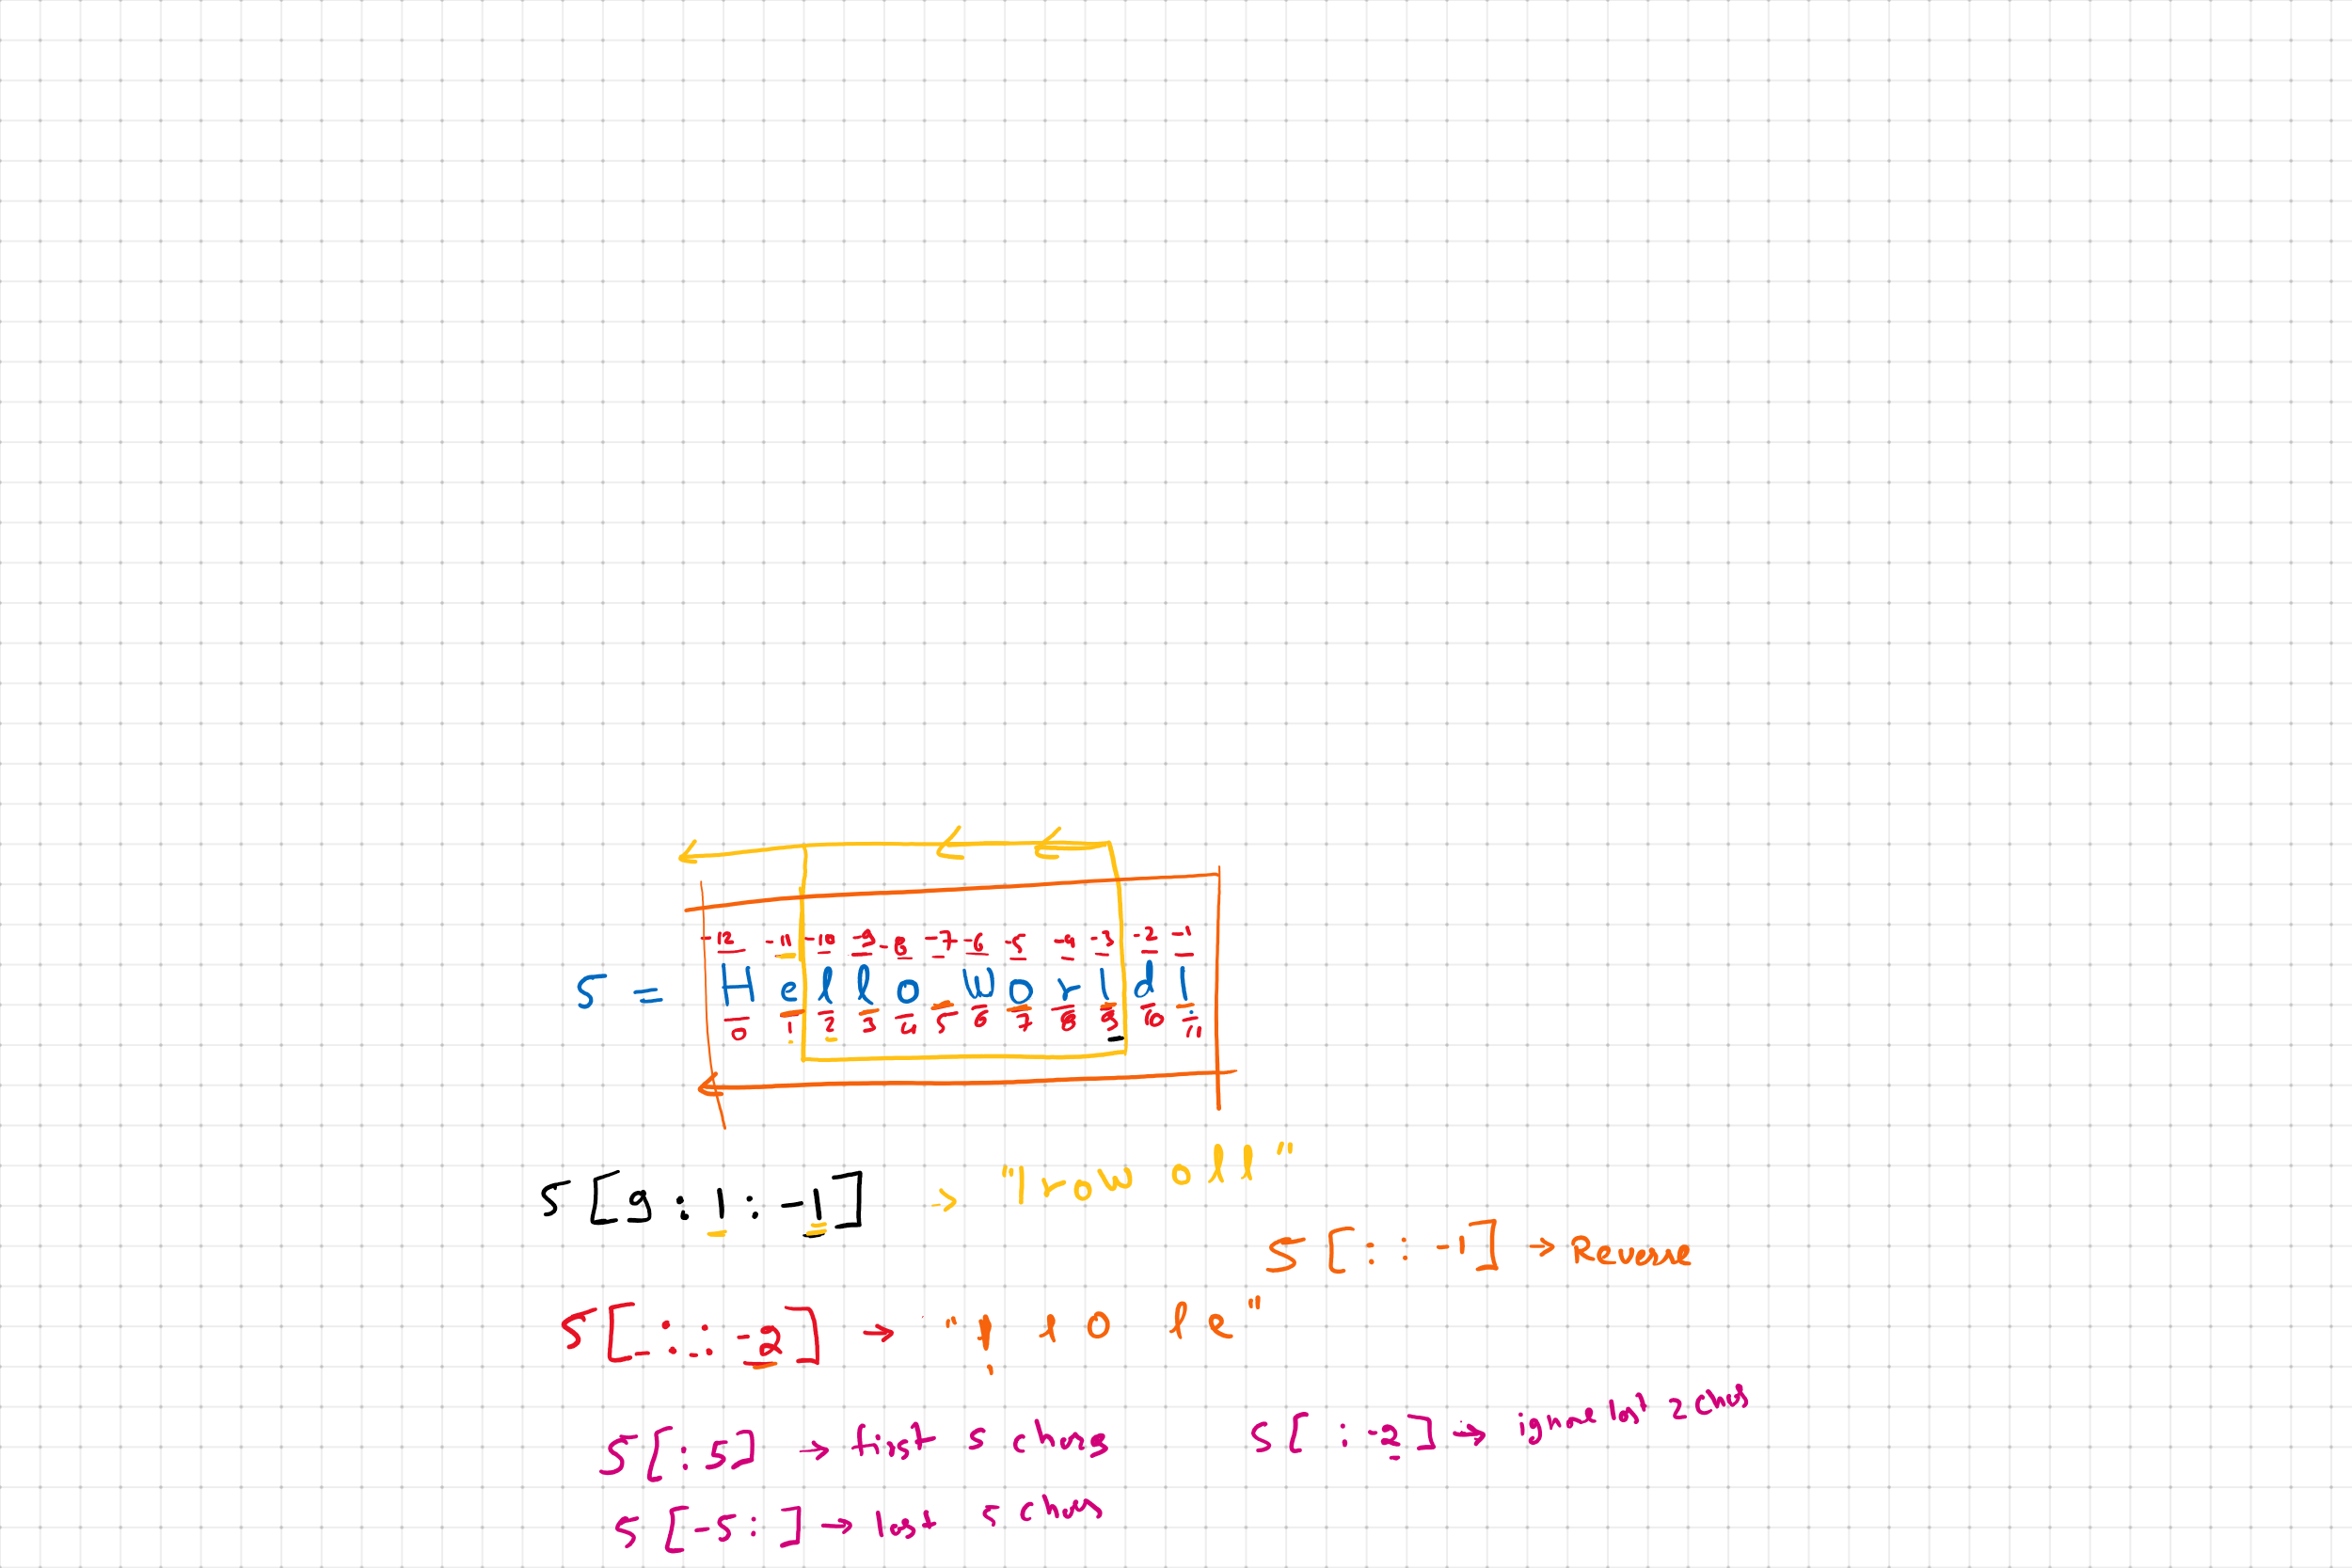 -12 -11 -10 -9 -8 -7 -6 -5 -4 -3 -2 -1
S = Hello World!
0 1 2 3 4 5 6 7 8 9 10 11
S[9:1:-1] → "lrow oll"
S[::-1] → Reverse
S[_:_:-2] → "! lo le"
S[:5] → first 5 chars
S[:-2] → ignore last 2 chars
S[-5:] → last 5 chars